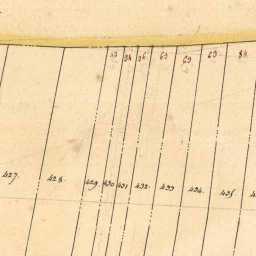 63 69 63 84
427. 428. 429. 430. 431. 432. 433 434. 435